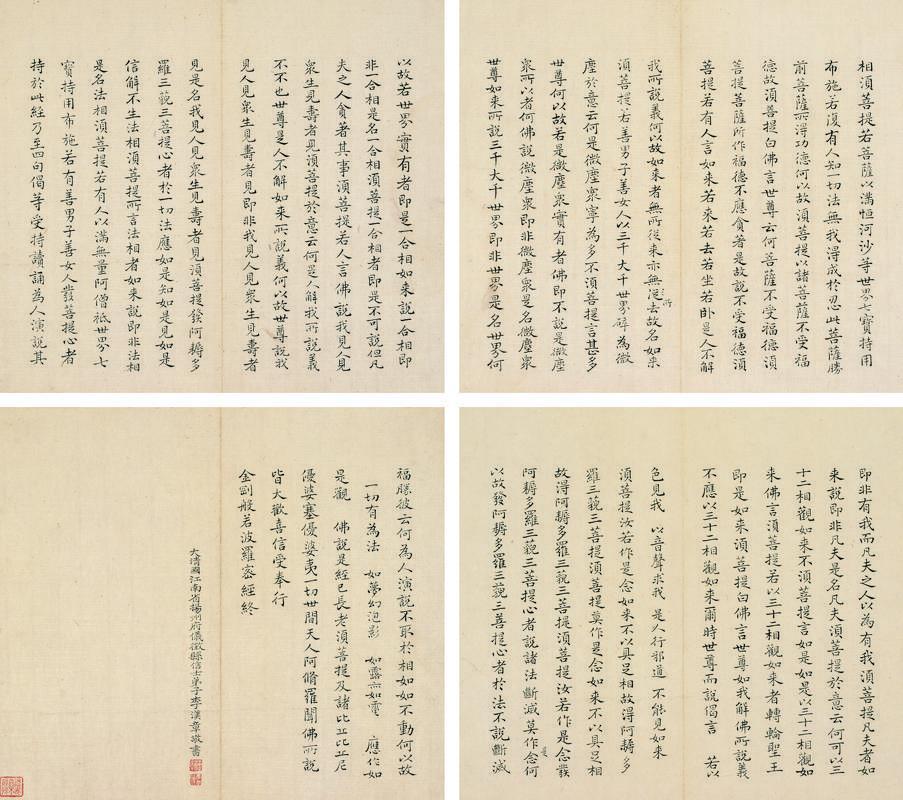 相須菩提若菩薩以滿恒河沙等世界七寶持用
布施若復有人知一切法無我得成於忍此菩薩勝
前菩薩所得功德何以故須菩提以諸菩薩不受福
德故須菩提白佛言世尊云何菩薩不受福德須
菩提菩薩所作福德不應貪著是故說不受福德須
菩提若有人言如来若来若去若坐若卧是人不解
我所說義何以故如来者無所從来亦無所從去故名如来
須菩提若善男子善女人以三千大千世界碎為微
塵於意云何是微塵衆寧為多不須菩提言甚多
世尊何以故若是微塵衆實有者佛即不說是微塵
衆所以者何佛說微塵衆即非微塵衆是名微塵衆
世尊如来所說三千大千世界即非世界是名世界何
以故若世界實有者即是一合相如来說一合相即
非一合相是名一合相須菩提一合相者即是不可說但凡
夫之人貪著其事須菩提若人言佛說我見人見
衆生見壽者見須菩提於意云何是人解我所說義
不不也世尊是人不解如来所說義何以故世尊說我
見人見衆生見壽者見即非我見人見衆生見壽者
見是名我見人見衆生見壽者見須菩提發阿耨多
羅三藐三菩提心者於一切法應如是知如是見如是
信解不生法相須菩提所言法相者如来說即非法相
是名法相須菩提若有人以滿無量阿僧祇世界七
寶持用布施若有善男子善女人發菩提心者
持於此經乃至四句偈等受持讀誦為人演說其
即非有我而凡夫之人以為有我須菩提凡夫者如
来說即非凡夫是名凡夫須菩提於意云何可以三
十二相觀如来不須菩提言如是如是以三十二相觀如
来佛言須菩提若以三十二相觀如来者轉輪聖王
即是如来須菩提白佛言世尊如我解佛所說義
不應以三十二相觀如来爾時世尊而說偈言 若以
色見我 以音聲求我 是人行邪道 不能見如来
須菩提汝若作是念如来不以具足相故得阿耨多
羅三藐三菩提須菩提莫作是念如来不以具足相
故得阿耨多羅三藐三菩提須菩提汝若作是念發
阿耨多羅三藐三菩提心者說諸法斷滅莫作是念何
以故發阿耨多羅三藐三菩提心者於法不說斷滅
福勝彼云何為人演說不取於相如如不動何以故
一切有為法 如夢幻泡影 如露亦如電 應作如
是觀 佛說是經已長老須菩提及諸比丘比丘尼
優婆塞優婆夷一切世間天人阿脩羅聞佛所說
皆大歡喜信受奉行
金剛般若波羅密經終
大清國江南省揚州府儀徵縣信士弟子李漢章敬書